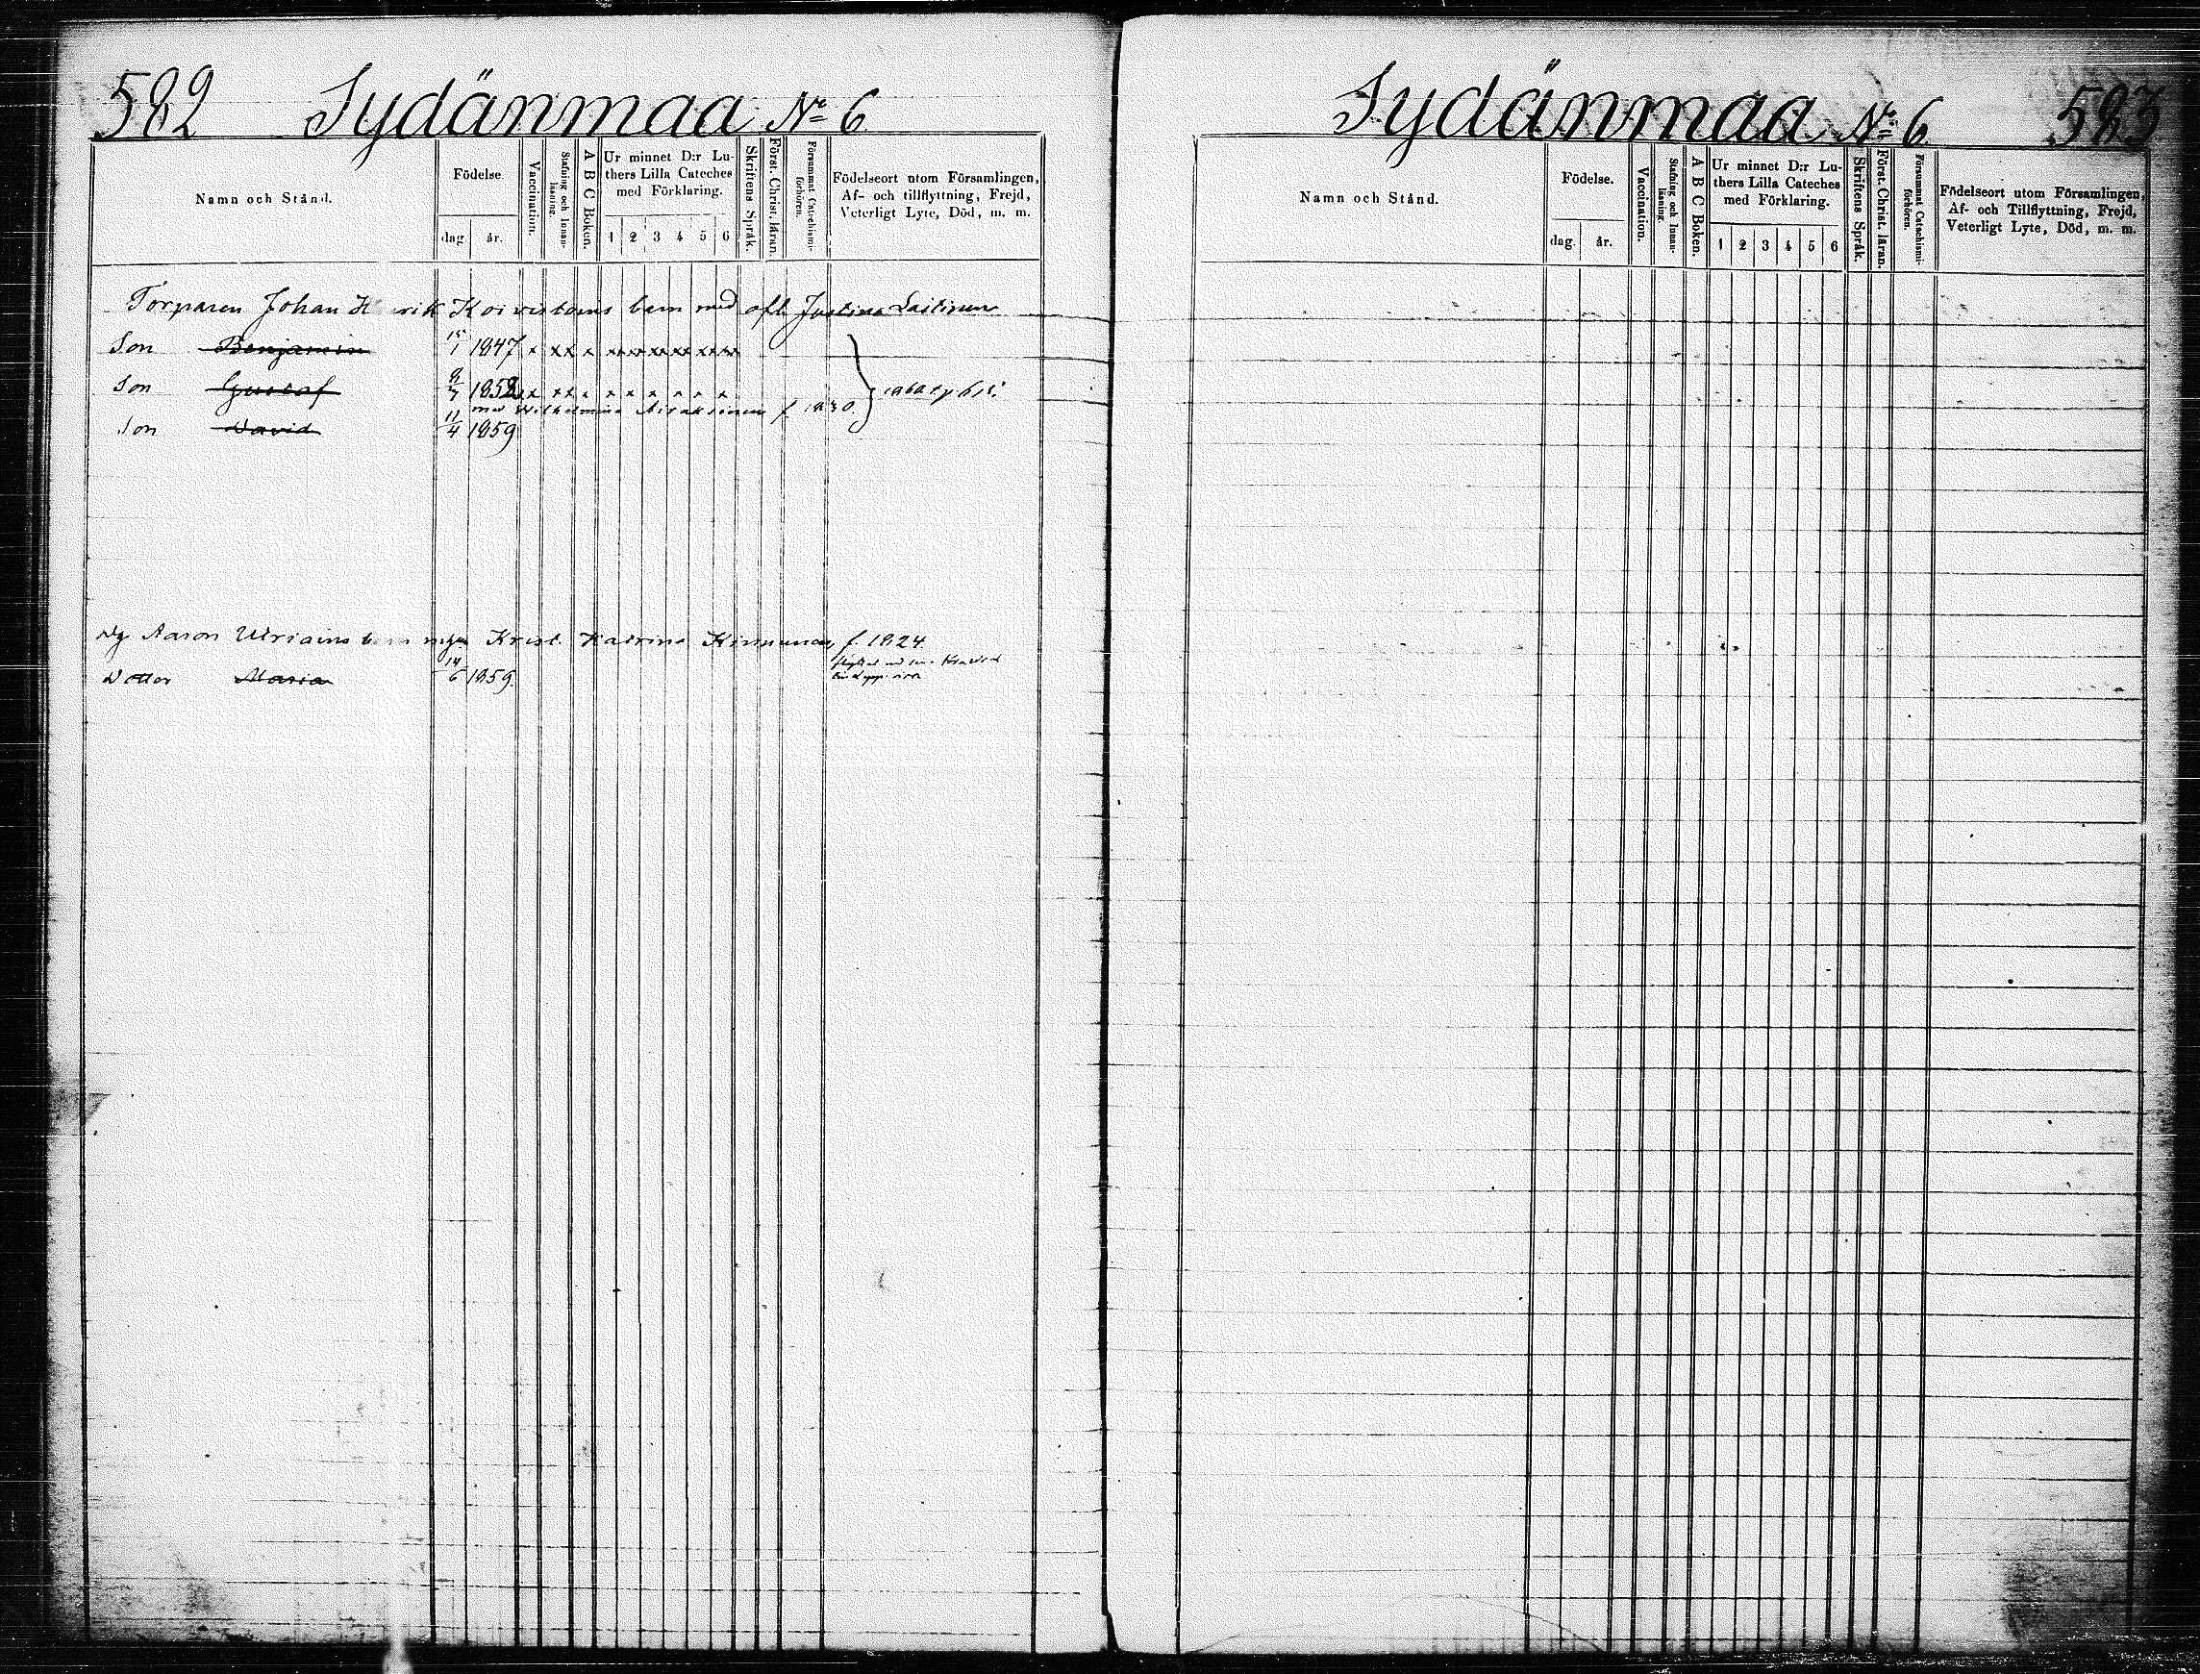 582 Sydänmaa No 6
Namn och Stånd.
Födelse.
dag år.
Vaccination.
Stafning och Innan-
läsning.
A B C Boken.
Ur minnet D:r Lu-
thers Lilla Cateches
med Förklaring.
1 2 3 4 5 6
Skriftens Språk.
Först. Christ. läran.
Försummat Catechismi-
förhören.
Födelseort utom Församlingen,
Af- och tillflyttning, Frejd,
Veterligt Lyte, Död, m. m.
Torparen Johan Koivistoins barn med Justina Laitinen
Son Benjamin 15/1 1847 x xx x xx xx xx xx xx xx
Son Gustaf 1852 x xx x x x x x x x
med Wilhelmina f. 1830.
Son David 11/4 1859
Aaron Kristi. Katrina Kinnunen, f. 1824.
Dotter Maria 14/6 1859.
Sydänmaa No 6. 583
Namn och Stånd.
Födelse.
dag. år.
Vaccination.
Stafning och Innan-
läsning.
A B C Boken.
Ur minnet D:r Lu-
thers Lilla Cateches
med Förklaring.
1 2 3 4 5 6
Skriftens Språk.
Först. Christ. läran.
Försummat Catechismi-
förhören.
Födelseort utom Församlingen,
Af- och Tillflyttning, Frejd,
Veterligt Lyte, Död, m. m.